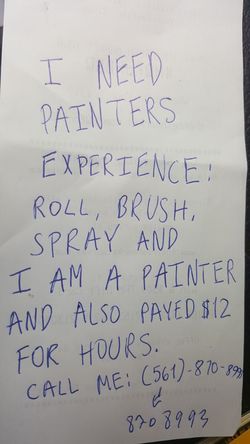 I NEED
PAINTERS
EXPERIENCE:
ROLL, BRUSH,
SPRAY AND
I AM A PAINTER
AND ALSO PAYED $12
FOR HOURS.
CALL ME: (561)-870-8993
8708993